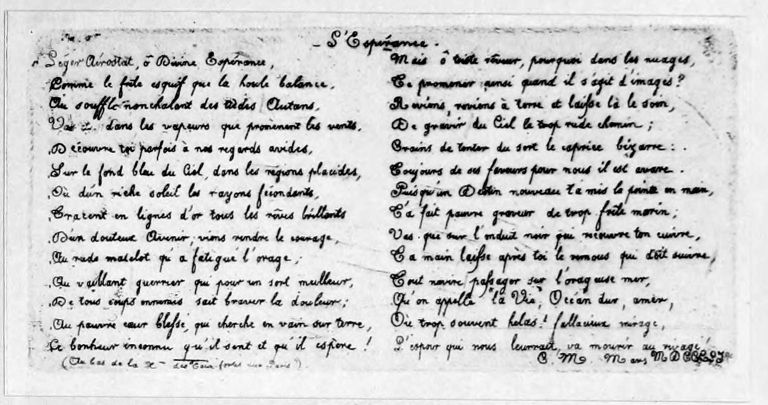 L'Espérance.
Léger Aérostat, ô Divine Espérance,
Comme le frêle esquif que la houle balance,
Au souffle nonchalant des tièdes Autans,
Vas dans les vapeurs que promènent les vents,
Découvre toi parfois à nos regards avides,
Sur le fond bleu du Ciel, dans les régions placides,
Où d'un riche soleil les rayons fécondants,
Tracent en lignes d'or tous les rêves brillants
D'un douteux Avenir; viens rendre le courage,
Au rude matelot qu'a fatigué l'orage;
Au vaillant guerrier qui pour un sort meilleur,
De tous temps ennemis sait braver la douleur;
Au pauvre cœur blessé, qui cherche en vain sur terre,
Le bonheur inconnu qu'il sent et qu'il espère!
(Au bas de la des Eaux fortes sur Paris).
Mais ô triste rêveur, pourquoi dans les nuages,
Te promener ainsi quand il s'agit d'images?
Reviens, reviens à terre et laisse là le soin,
De gravir du Ciel le trop rude chemin;
Crains de tenter du sort le caprice bizarre:
Toujours de ses faveurs pour nous il est avare.
Puisqu'un Destin nouveau t'a mis la pointe en main,
T'a fait pauvre graveur de trop frêle marin;
Vas que sur l'enduit noir qui recouvre ton cuivre,
Ta main laisse après toi le remous qui doit suivre,
Tout navire passager sur l'orageuse mer,
Qu'on appelle "la Vie", Océan dur, amer,
Où trop souvent hélas! fallacieux mirage,
L'espoir qui nous leurrait, va mourir au rivage!
C. M. Mars